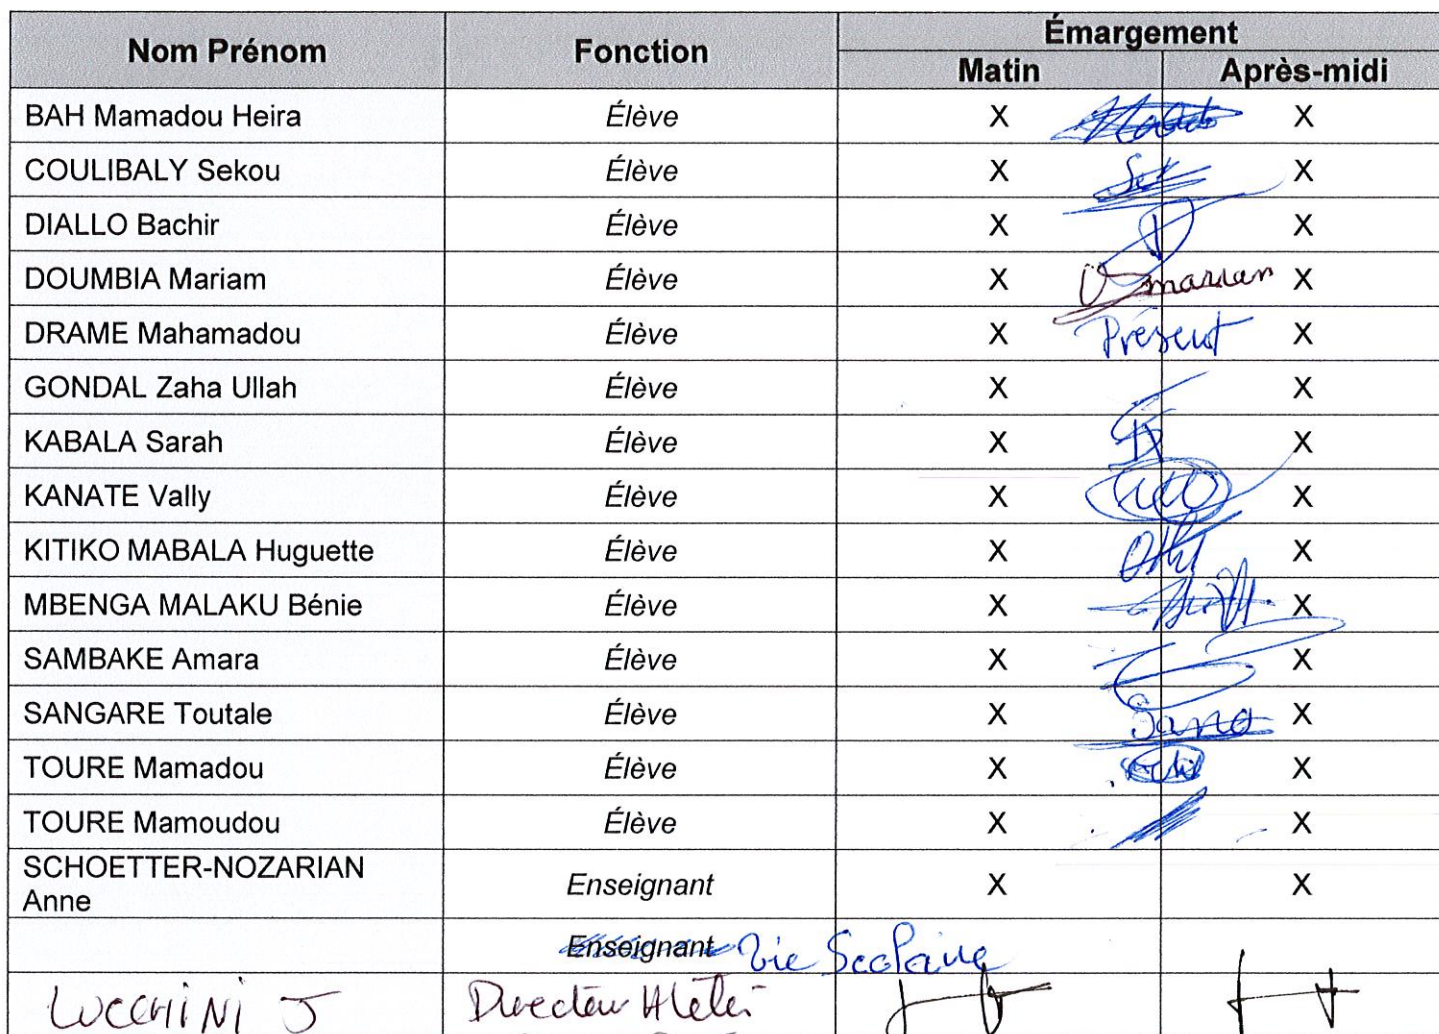 Nom Prénom Fonction Émargement
Matin Après-midi
BAH Mamadou Heira Élève X X
COULIBALY Sekou Élève X Sek X
DIALLO Bachir Élève X X
DOUMBIA Mariam Élève X X
DRAME Mahamadou Élève X Présent X
GONDAL Zaha Ullah Élève X X
KABALA Sarah Élève X X
KANATE Vally Élève X X
KITIKO MABALA Huguette Élève X X
MBENGA MALAKU Bénie Élève X X
SAMBAKE Amara Élève X X
SANGARE Toutale Élève X X
TOURE Mamadou Élève X X
TOURE Mamoudou Élève X X
SCHOETTER-NOZARIAN
Anne Enseignant X X
Enseignant Vie Scolaire
LUCCHINI J Directeur